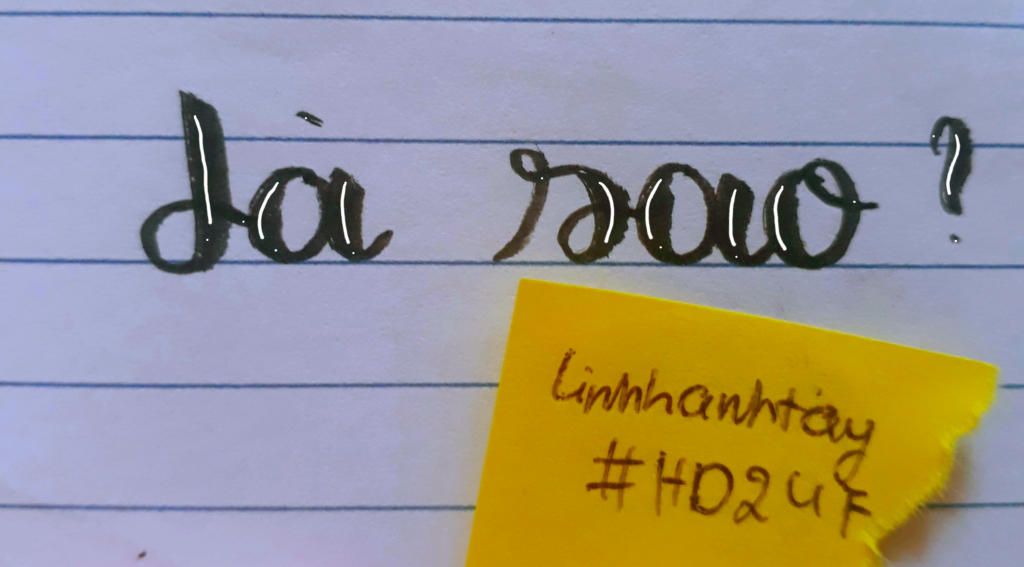 Là sao?
linhhanhtây
#HD24F